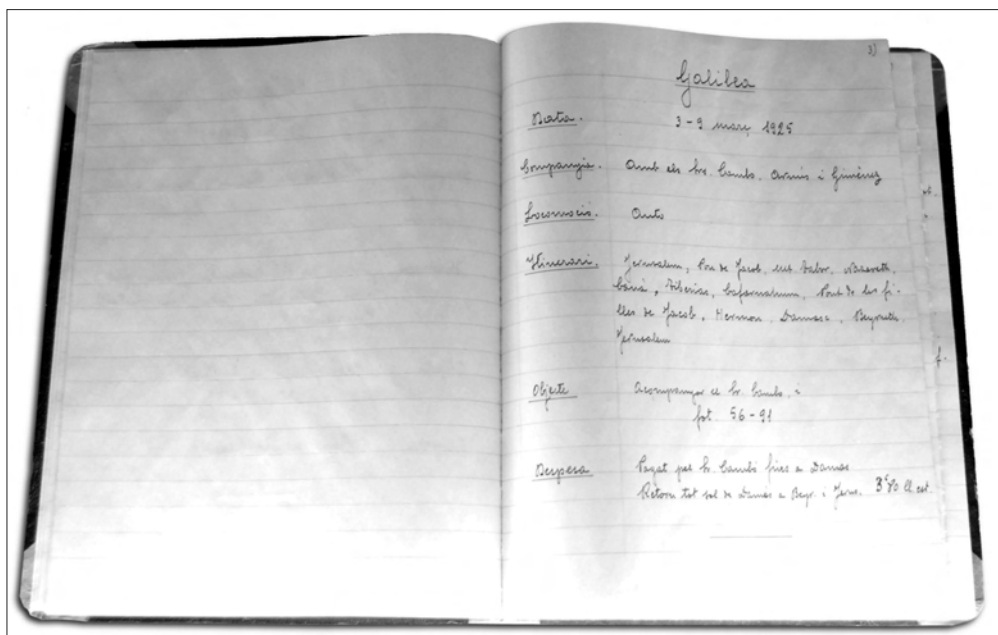 3)
Galilea
Data. 3-9 març, 1925
Companyia. Amb els srs. Cambó, Armús i Giménez
Locomoció. Auto
Itinerari. Jerusalem, Pou de Jacob, mt. Tabor, Nazareth,
Canà, Tiberias, Cafarnaüm, Pont de les fi-
lles de Jacob, Hermon, Damasc, Beyrouth,
Jerusalem
Objecte Acompanyar el Sr. Cambó, i
fot. 56-91
Despesa Pagat per Sr. Cambó fins a Damas
Retorn tot sol de Damàs a Beyr. i Jerus. 3'80 ll est.